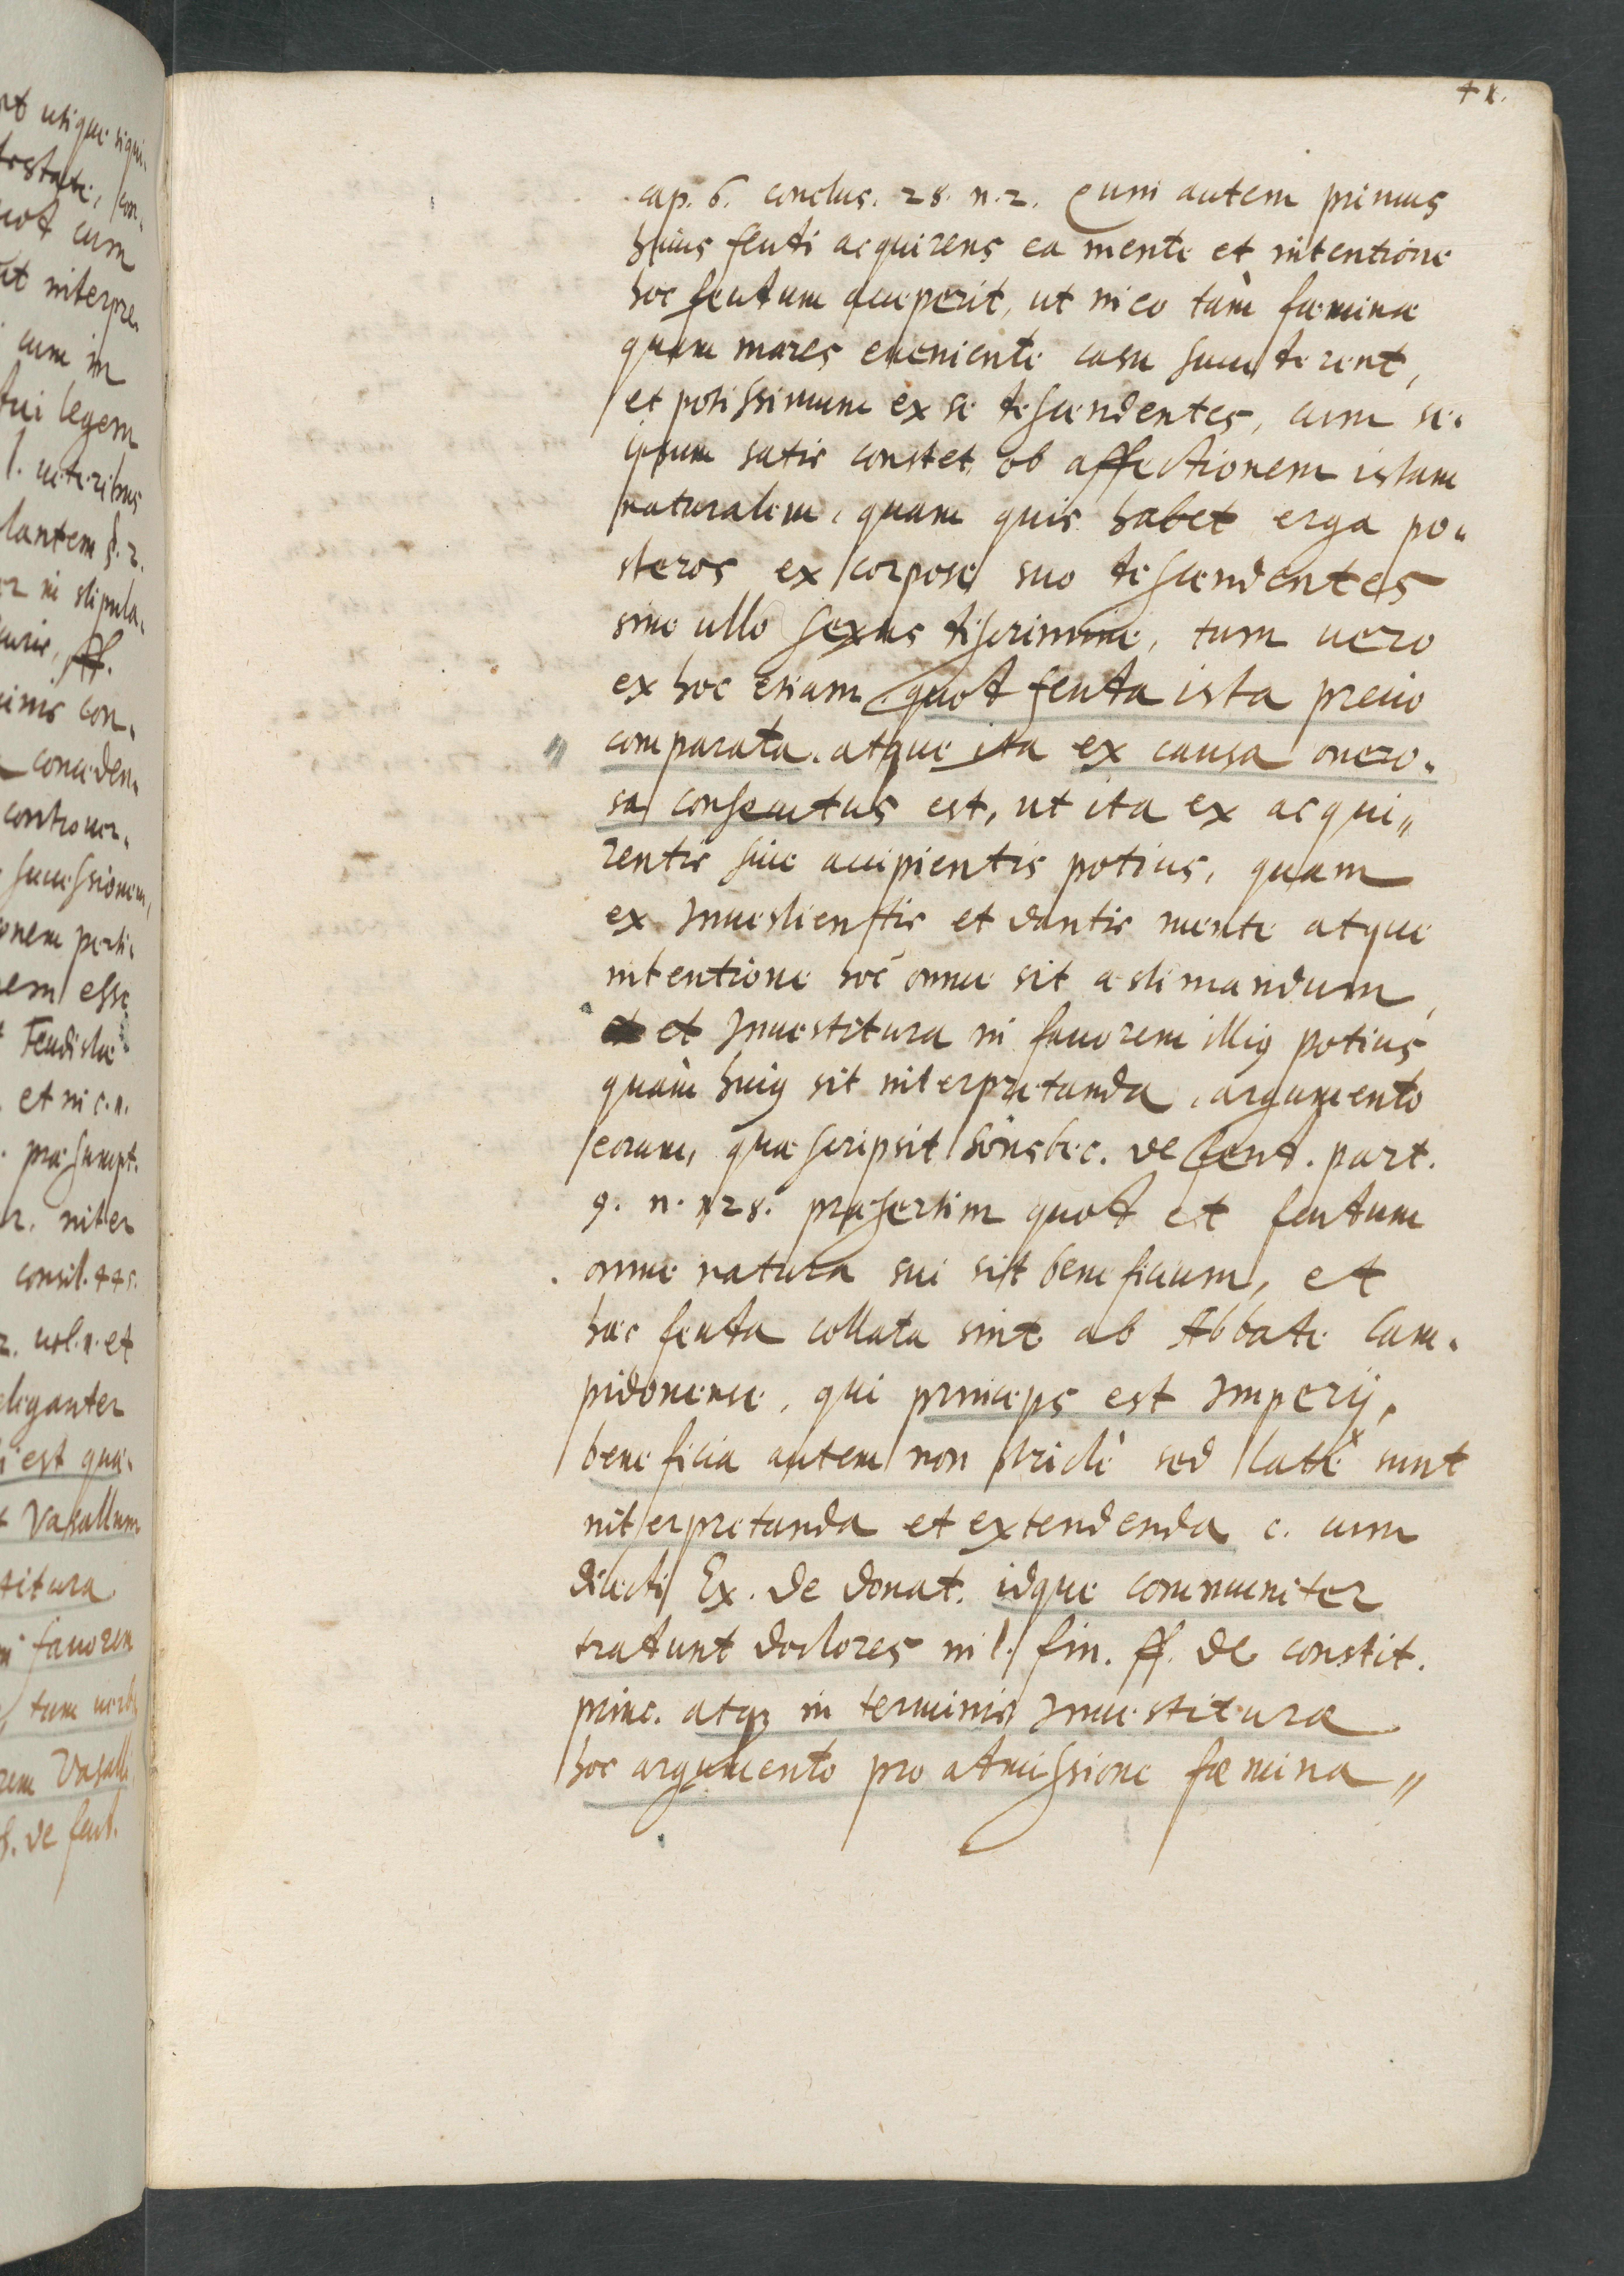 41.
cap. 6. conclus. 28. n. 2. Cum autem primus
huius feudi acquirens ea mente et intentione
hoc feudum acceperit, ut in eo tàm fæminæ
quam mares eueniente casu succederent,
et potissimum ex se descendentes, cum se.
ipsum satis constet, ob affectionem istam
naturalem, quam quis habet erga po.
steros ex corpore suo descendentes
sine ullo sexus discrimine, tum uero
ex hoc etiam quod feuda ista precio
comparata. atque ita ex causa onero.
sa consecutus est, ut ita ex acqui„
rentis siue accipientis potius, quam
ex Inuestientis et dantis mente atque
intentione hoc omne sit æstimandum,
et Inuestitura in fauorem illig potius
quàm huig sit interpretanda, argumento
eorum, quæ scripsit Sonsbec. de feud. part.
9. n. 128. præsertim quod et feudum
omne natura sui sit beneficium, et
hæc feuda collata sint ab Abbate Cam.
pidonense, qui princeps est Imperij,
beneficia autem non strictè sed latè sunt
interpretanda et extendenda c. cum
dilecti Ex. de donat. idque communiter
tradunt doctores in l. fin. ff. de constit.
princ. atq3 in terminis Inuestituræ
hoc argumento pro admissione fæmina„
ut interpre.
cum in
legem
l. ueteribus
stipula.
ff.
con.
conceden.
controuer.
successionem,
esse
Feudistæ
et in c. 1.
præsumpt.
inter
consil. 445.
uol. 1. et
eleganter
est quæ.
Vasallum
fauorem
tum uerb
Vasalli
de feud.